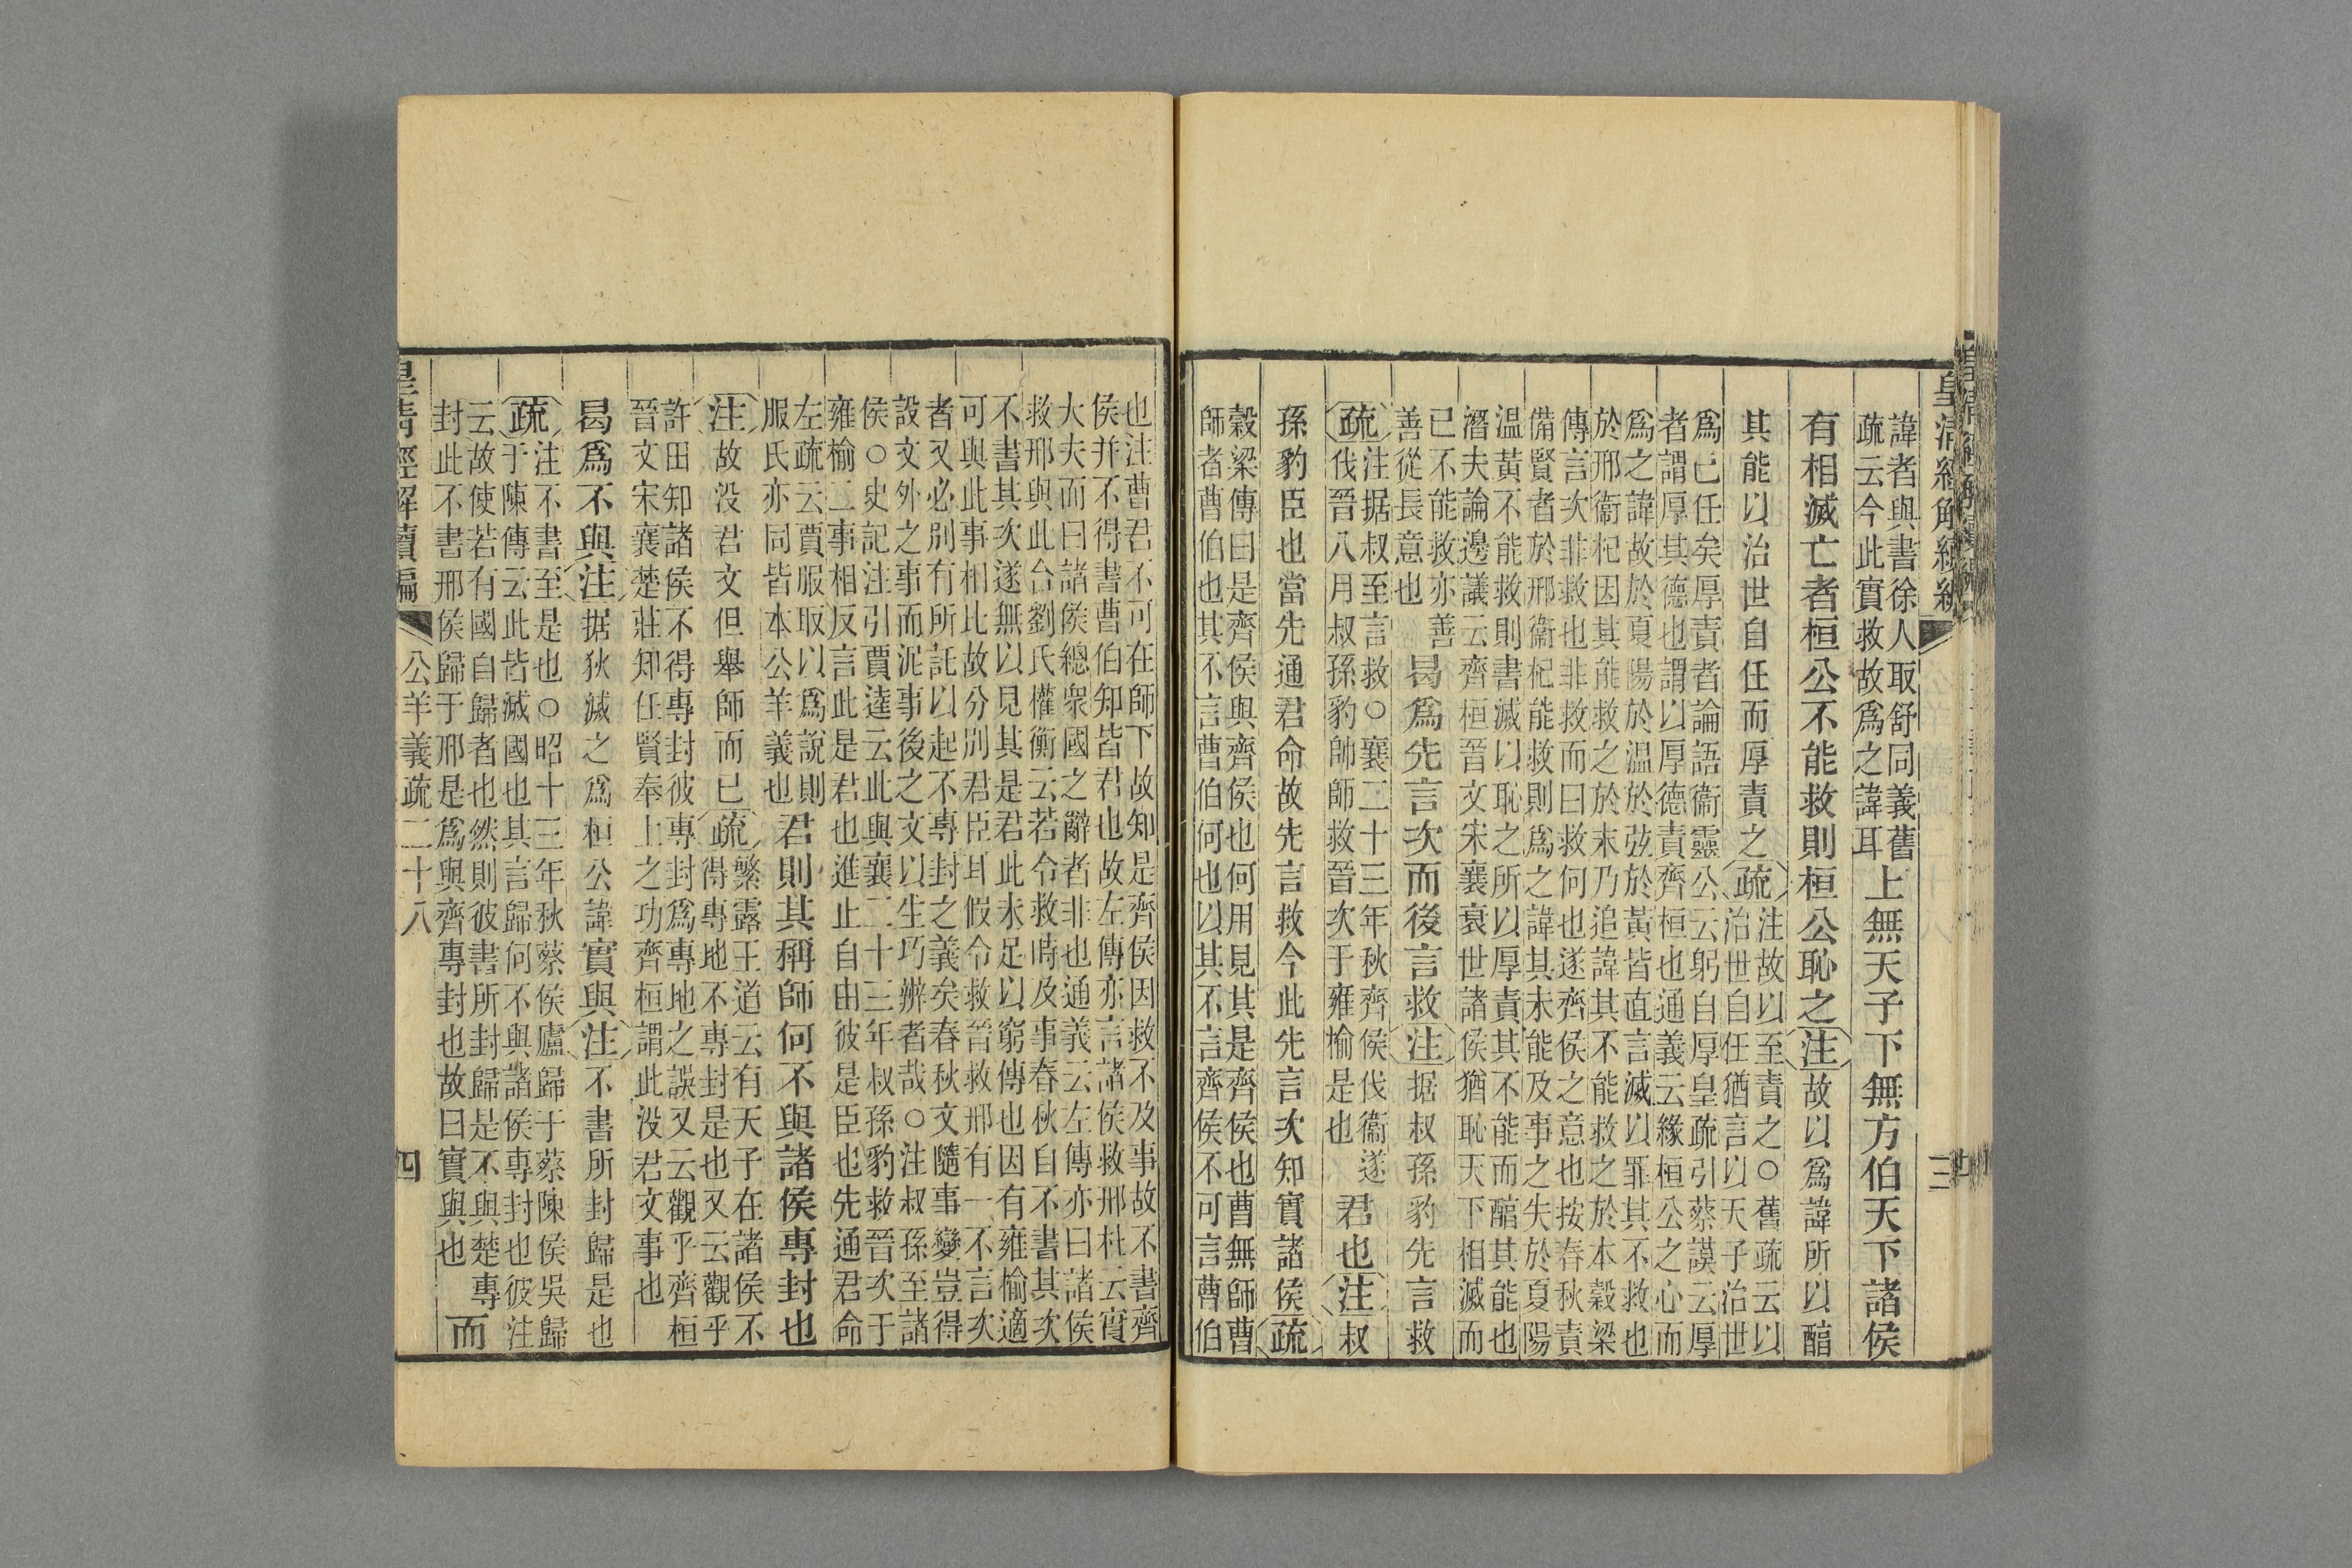 皇清經解續編
三
諱者與書徐人取舒同義舊
疏云今此實救故爲之諱耳
上無天子下無方伯天下諸侯
有相滅亡者桓公不能救則桓公恥之注故以爲諱所以醕
其能以治世自任而厚責之疏
注故以至責之○舊疏云以
治世自任猶言以天子治世
爲已任矣厚責者論語衞靈公云躬自厚皇疏引蔡謨云厚
者謂厚其德也謂以厚德責齊桓也通義云緣桓公之心而
爲之諱故於夏陽於温於弦於黃皆直言滅以罪其不救也
於邢衞杞因其能救之於末乃追諱其不能救之於本穀梁
傳言次非救也非救而曰救何也遂齊侯之意也按春秋責
備賢者於邢衞杞能救則爲之諱其未能及事之失於夏陽
温黃不能救則書滅以恥之所以厚責其不能而醕其能也
潛夫論邊議云齊桓晉文宋襄衰世諸侯猶恥天下相滅而
已不能救亦善
善從長意也
曷爲先言次而後言救注据叔孫豹先言救
疏注据叔至言救○襄二十三年秋齊侯伐衞遂
伐晉八月叔孫豹帥師救晉次于雍榆是也
君也注叔
孫豹臣也當先通君命故先言救今此先言次知實諸侯疏
穀梁傳曰是齊侯與齊侯也何用見其是齊侯也曹無師曹
師者曹伯也其不言曹伯何也以其不言齊侯不可言曹伯
也注曹君不可在師下故知是齊侯因救不及事故不書齊
侯并不得書曹伯知皆君也故左傳亦言諸侯救邢杜云實
大夫而曰諸侯總衆國之辭者非也通義云左傳亦曰諸侯
救邢與此合劉氏權衡云若令救時及事春秋自不書其次
不書其次遂無以見其是君此未足以窮傳也因有雍榆適
可與此事相比故分別君臣耳假令救晉救邢有一不言次
者又必別有所託以起不專封之義矣春秋文隨事變豈得
設文外之事而泥事後之文以生巧辨者哉○注叔孫至諸
侯○史記注引賈逵云此與襄二十三年叔孫豹救晉次于
雍榆二事相反言此是君也進止自由彼是臣也先通君命
左疏云賈服取以爲說則
服氏亦同皆本公羊義也
君則其稱師何不與諸侯專封也
注故没君文但舉師而已疏
繁露王道云有天子在諸侯不
得專地不專封是也又云觀乎
許田知諸侯不得專封彼專封爲專地之誤又云觀乎齊桓
晉文宋襄楚莊知任賢奉上之功齊桓謂此没君文事也
曷爲不與注据狄滅之爲桓公諱實與注不書所封歸是也
疏注不書至是也○昭十三年秋蔡侯廬歸于蔡陳侯吳歸
于陳傳云此皆滅國也其言歸何不與諸侯專封也彼注
云故使若有國自歸者也然則彼書所封歸是不與楚專
封此不書邢侯歸于邢是爲與齊專封也故曰實與也
而
皇清經解續編
公羊義疏二十八
四